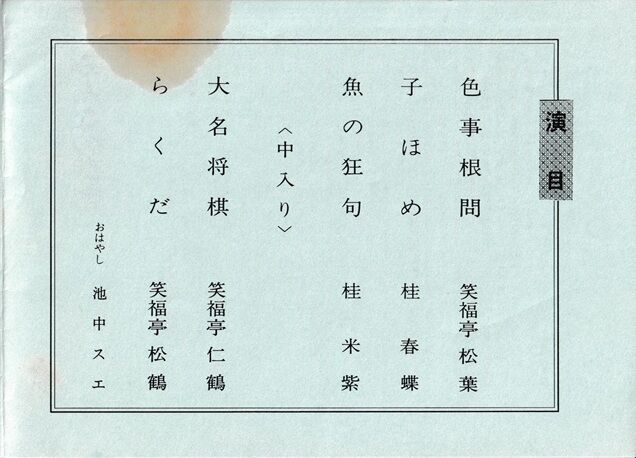 演目
色事根問 笑福亭松葉
子ほめ 桂春蝶
魚の狂句 桂米紫
〈中入り〉
大名将棋 笑福亭仁鶴
らくだ 笑福亭松鶴
おはやし 池中スエ